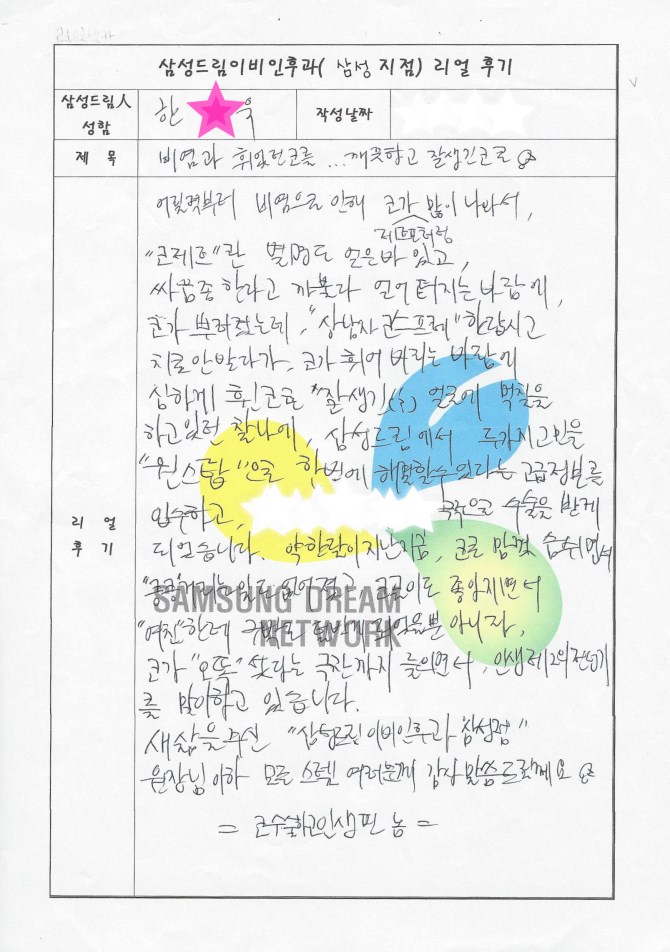 삼성드림이비인후과( 삼성 지점) 리얼 후기
삼성드림人 성함
한 욱
작성날짜
제 목
비염과 휘었던코를 ... 깨끗하고 잘생긴코로
리 얼 후 기
어릴적부터 비염으로 인해 코가 많이 나와서,
"코찌르"란 별명도 얻은바 있고,
싸움좀 한다고 까불다 얻어 터지는 바람에,
코가 부러졌는데, "상남자 코스프레" 한답시고
치료안받다가, 코가 휘어 버리는 바람에
심하게 휜코로 "잘생기(?) 얼굴에 먹칠을
하고있던 찰나에, 삼성드림에서 두가지고민을
"원스탑"으로 한번에 해결할수있다는 고급정보를
입수하고, 수술을 받게
되었습니다. 약한달이지난지금, 코로 맘껏 숨쉬면서
없어졌고, 코골이도 좋아지면서
"여친"한테 뿐 아니라,
코가 "오똑" 섰다는 극찬까지 들으면서, 인생제2의전성기
를 맞이하고 있습니다.
새삶을주신 "삼성드림이비인후과 삼성점"
원장님 이하 모든 스텝 여러분께 감사 말씀드릴께요
= 코수술하고인생핀 놈 =
SAMSUNG DREAM NETWORK